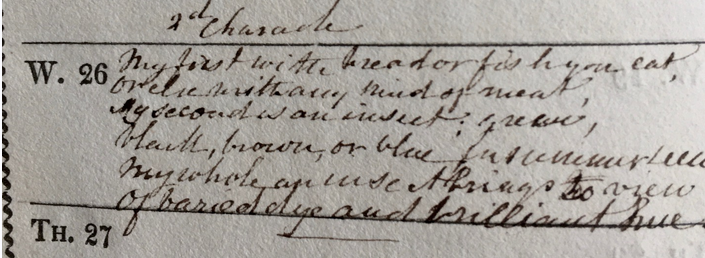 2d Charade
W. 26 My first with bread or fish you eat,
Or else with any kind of meat;
My second is an insect: green,
black, brown, or blue, in summer seen
My whole an insect brings to view
Of varied dye and brilliant hue.
TH. 27